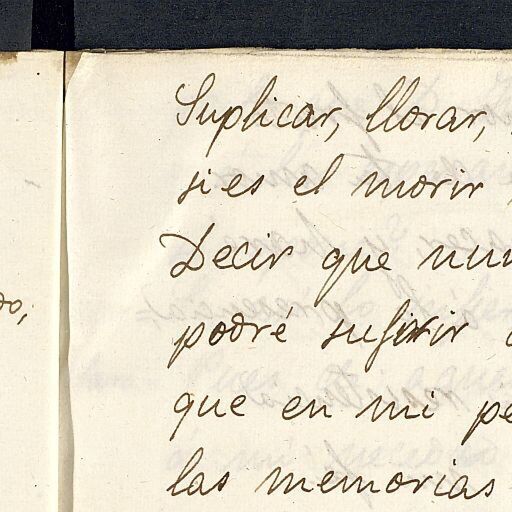 do;
Suplicar, llorar,
si es el morir
Decir que nun
podré sufrir
que en mi pe
las memorias